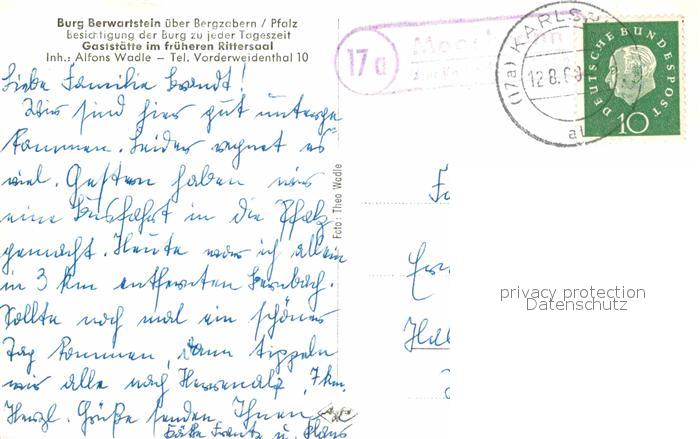 Burg Berwartstein über Bergzabern / Pfalz
Besichtigung der Burg zu jeder Tageszeit
Gaststätte im früheren Rittersaal
Inh.: Alfons Wadle – Tel. Vorderweidenthal 10
Liebe Familie Brandt!
Wir sind hier gut unterge
kommen. Leider regnet es
viel. Gestern haben wir
eine Busfahrt in die Pfalz
gemacht. Heute war ich allein
in 3 km entfernten Bernbach.
Sollte noch mal ein schöner
Tag kommen, dann tippeln
wir alle nach Herrenalb, 7 km.
Herzl. Grüße senden Ihnen
u. Klaus
Foto: Theo Wadle
17a
(17a) KARLS
12.8.6
DEUTSCHE BUNDESPOST
10
privacy protection
Datenschutz